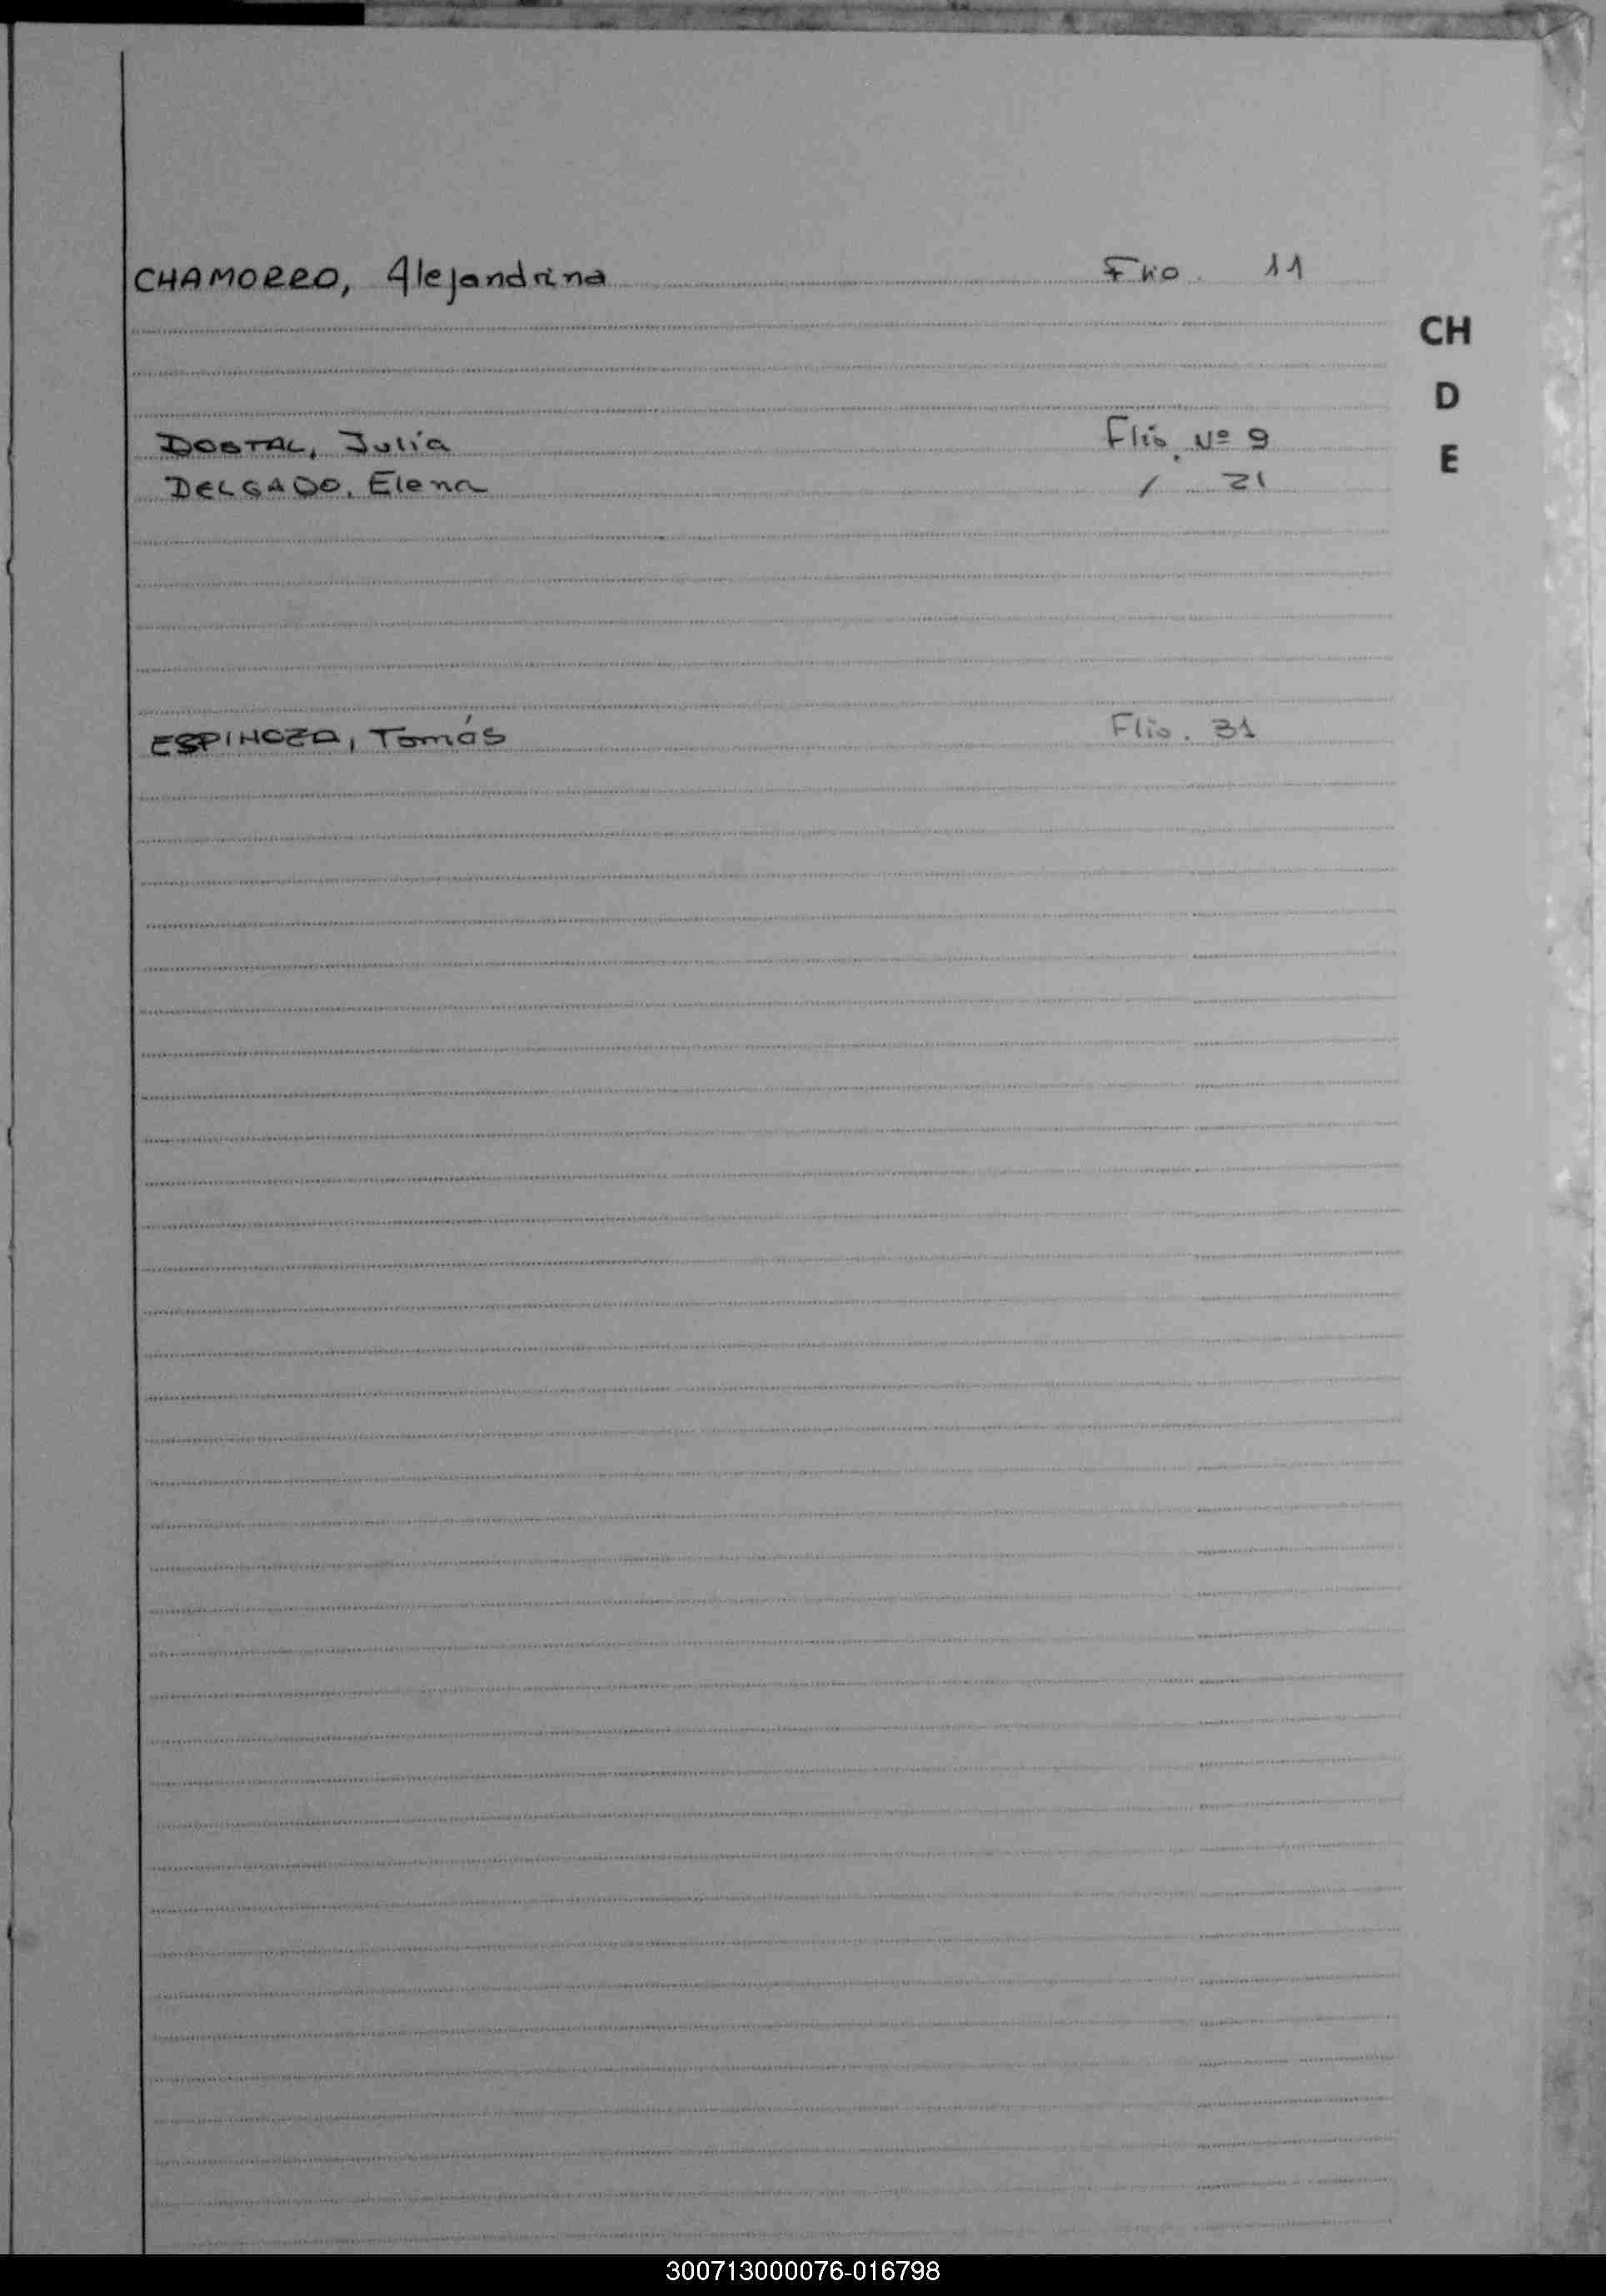 CHAMORRO, Alejandrina Flio. 11
CH
D
DOSTAL, Julia Flio. Nº 9
E
DELGADO, Elena / 21
ESPINOZA, Tomás Flio. 31
300713000076-016798